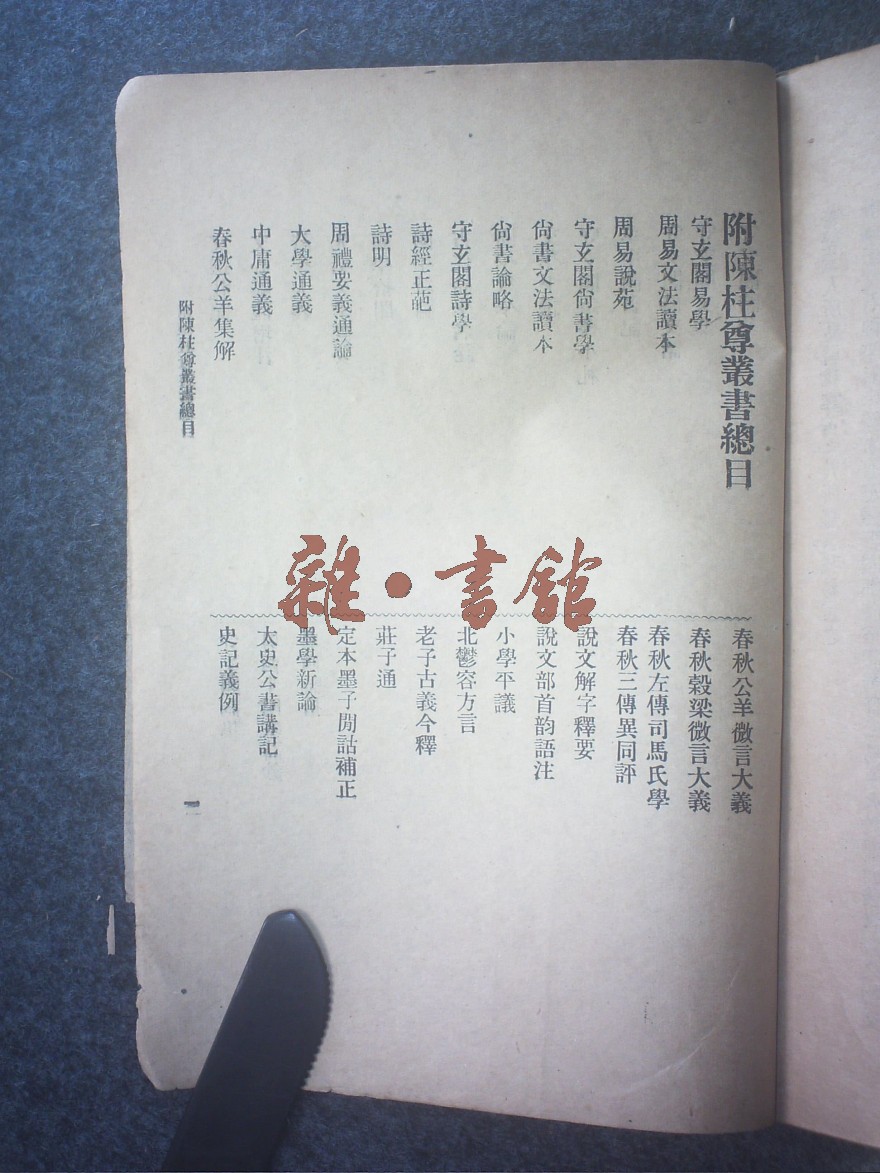 附陳柱尊叢書總目
守玄閣易學
周易文法讀本
周易說苑
守玄閣尙書學
尙書文法讀本
尙書論略
守玄閣詩學
詩經正葩
詩明
周禮要義通論
大學通義
中庸通義
春秋公羊集解
春秋公羊微言大義
春秋穀梁微言大義
春秋左傳司馬氏學
春秋三傳異同評
說文解字釋要
說文部首韵語注
小學平議
北鬱容方言
老子古義今釋
莊子通
定本墨子閒詁補正
墨學新論
太史公書講記
史記義例
附陳柱尊叢書總目
一
雜·書館